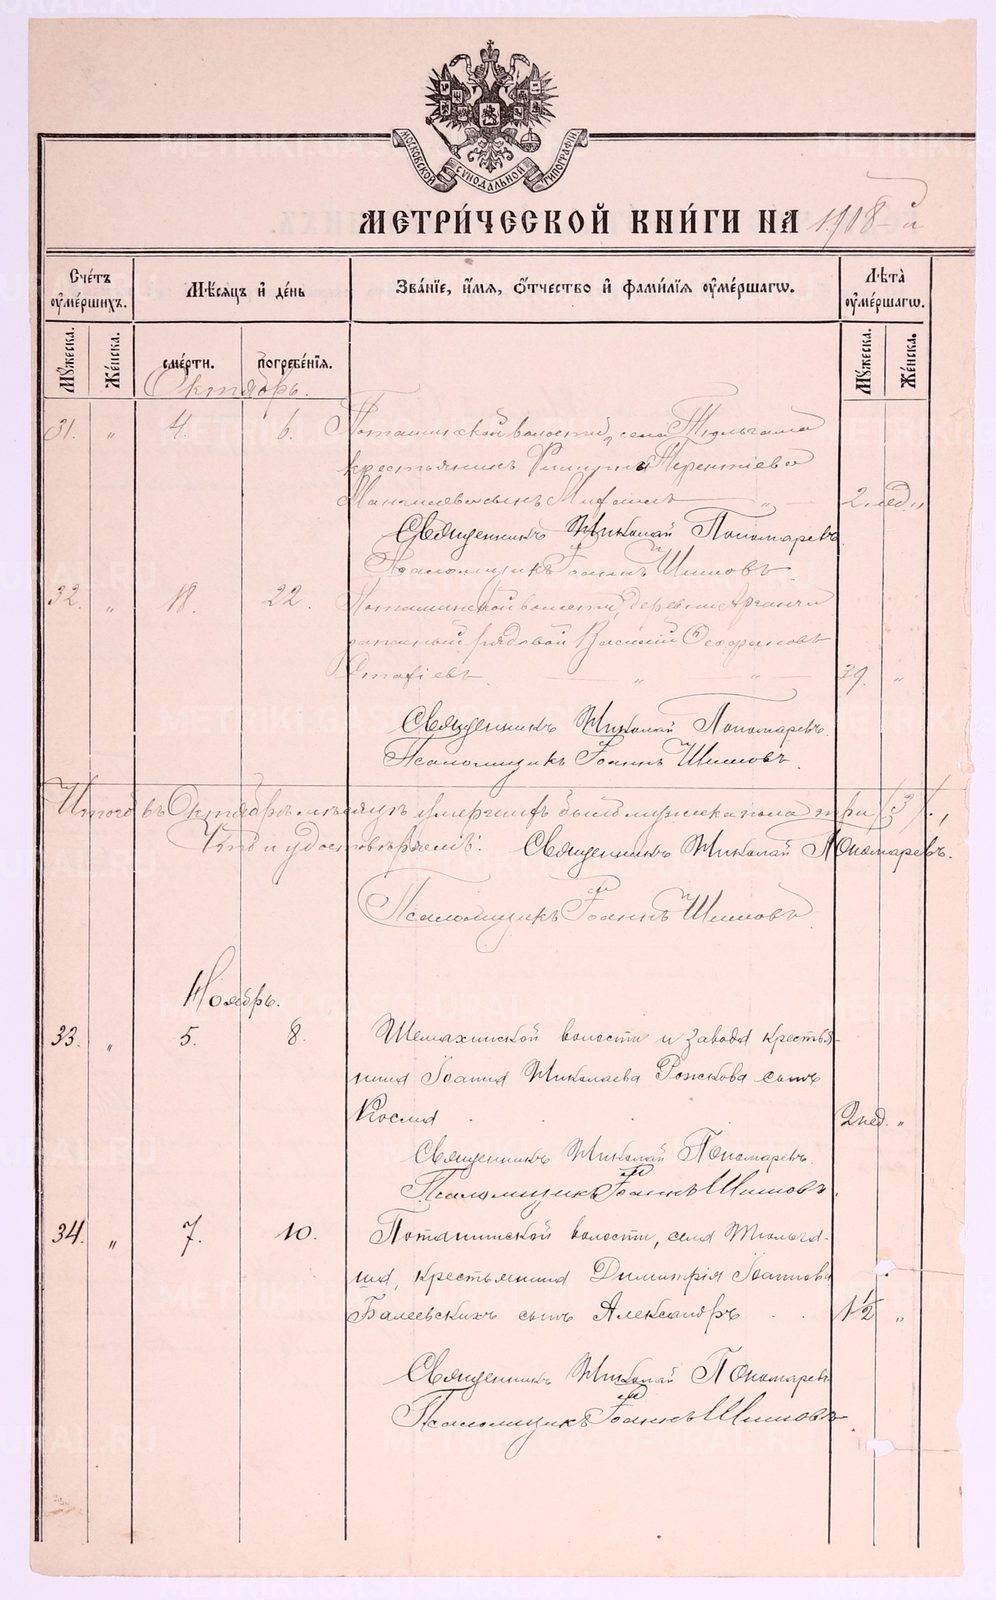 МОСКОВСКОЙ СУНОДАЛЬНОЙ ТИПОГРАФІИ
МЕТРИ́ЧЕСКОЙ КНИ́ГИ НА 1918-й
Сче́тъ ᲂу҆ме́ршихъ.
Мѣ́сяцъ и҆ де́нь
Зва́нїе, и҆́мѧ, ѻ҆́тчество и҆ фами́лїѧ ᲂу҆ме́ршагѡ.
Лѣ́та ᲂу҆ме́ршагѡ.
Мꙋ́жеска.
Же́нска.
сме́рти.
погребе́нїѧ.
Мꙋ́жеска.
Же́нска.
Октябрь.
31. " 4. 6. Поташинской волости, села Тюльгаша
крестьянина Терентіева
сынъ Михаилъ 2 нед. "
Священникъ Николай Пономаревъ
Псаломщикъ Іоаннъ Шишовъ.
32. " 18. 22. Поташинской волости, деревни
рядовой Василій
39. "
Священникъ Николай Пономаревъ.
Псаломщикъ Іоаннъ Шишовъ.
Итого въ Октябрѣ мѣсяцѣ умершихъ было мужска пола три (3).,
удостовѣряемъ: Священникъ Николай Пономаревъ.
Псаломщикъ Іоаннъ Шишовъ
Ноябрь.
33. " 5. 8. Шемахинской волости и завода крестья-
нина Іоанна Николаева Рожкова сынъ
Косма 2 нед. "
Священникъ Николай Пономаревъ.
Псаломщикъ Іоаннъ Шишовъ.
34. " 7. 10. Поташинской волости, села Тюльга-
ша, крестьянина Димитрія Іоаннова
Балеевскихъ сынъ Александръ 1 1/2 "
Священникъ Николай Пономаревъ
Псаломщикъ Іоаннъ Шишовъ
METRIKI.GASO-URAL.RU